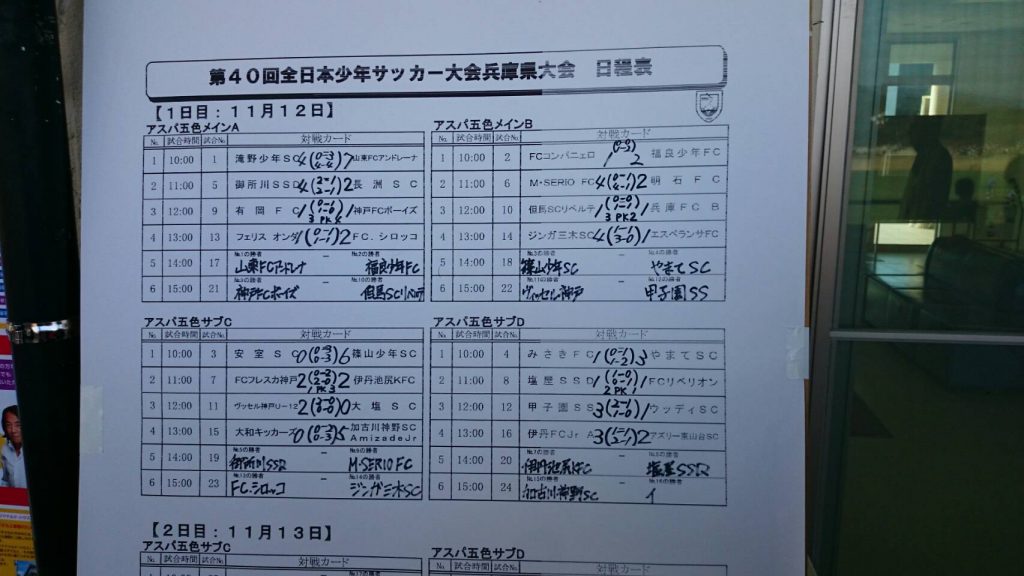 第40回全日本少年サッカー大会兵庫県大会 日程表
【1日目：11月12日】
アスパ五色メインA
No. 試合時間 試合No. 対戦カード
1 10:00 1 滝野少年SC 4 (0-3 4-4) 7 山東FCアンドレーナ
2 11:00 5 御所川SSD 4 (2-1 2-1) 2 長洲SC
3 12:00 9 有岡FC 1 (0-1 1-0) 1 神戸FCボーイズ
3 PK 4
4 13:00 13 フェリス オンダ 1 (0-1 1-1) 2 FC.シロッコ
5 14:00 17 No.1の勝者 山東FCアンドレーナ - No.2の勝者 福良少年FC
6 15:00 21 神戸FCボーイズ - No.10の勝者 但馬SCリベルテ
アスパ五色メインB
No. 試合時間 試合No. 対戦カード
1 10:00 2 FCコンパニェロ 1 2 福良少年FC
2 11:00 6 M・SERIO FC 4 (0-1 4-1) 2 明石FC
3 12:00 10 但馬SCリベルテ 1 1 兵庫FC B
3 PK 2
4 13:00 14 ジンガ三木SC 4 1 エスペランサFC
5 14:00 18 篠山少年SC - やまてSC
6 15:00 22 No.11の勝者 ヴィッセル神戸 - No.12の勝者 甲子園SS
アスパ五色サブC
No. 試合時間 試合No. 対戦カード
1 10:00 3 安室S 0 (0-3 0-3) 6 篠山少年SC
2 11:00 7 FCフレスカ神戸 2 (0-2 2-0) 2 伊丹池尻KFC
1 PK 3
3 12:00 11 ヴィッセル神戸U-12 2 0 大塩SC
4 13:00 15 大和キッカーズ 0 5 加古川神野SC AmizadeJr
5 14:00 19 No.5の勝者 - No.6の勝者 M・SERIO FC
6 15:00 23 No.13の勝者 FC.シロッコ - No.14の勝者 ジンガ三木SC
アスパ五色サブD
No. 試合時間 試合No. 対戦カード
1 10:00 4 みさきFC 1 (0-1 1-2) 3 やまてSC
2 11:00 8 塩屋SSD 1 1 FCリベリオン
2 PK 1
3 12:00 12 甲子園SS 3 1 ウッディSC
4 13:00 16 伊丹FCJr A 3 2 アズリー東山台SC
5 14:00 20 No.7の勝者 伊丹池尻KFC - No.8の勝者 塩屋SSD
6 15:00 24 No.15の勝者 加古川神野SC - No.16の勝者 イ
【2日目：11月13日】
アスパ五色サブC
No. 試合時間 試合No. 対戦カード
アスパ五色サブD
No. 試合時間 試合No. 対戦カード